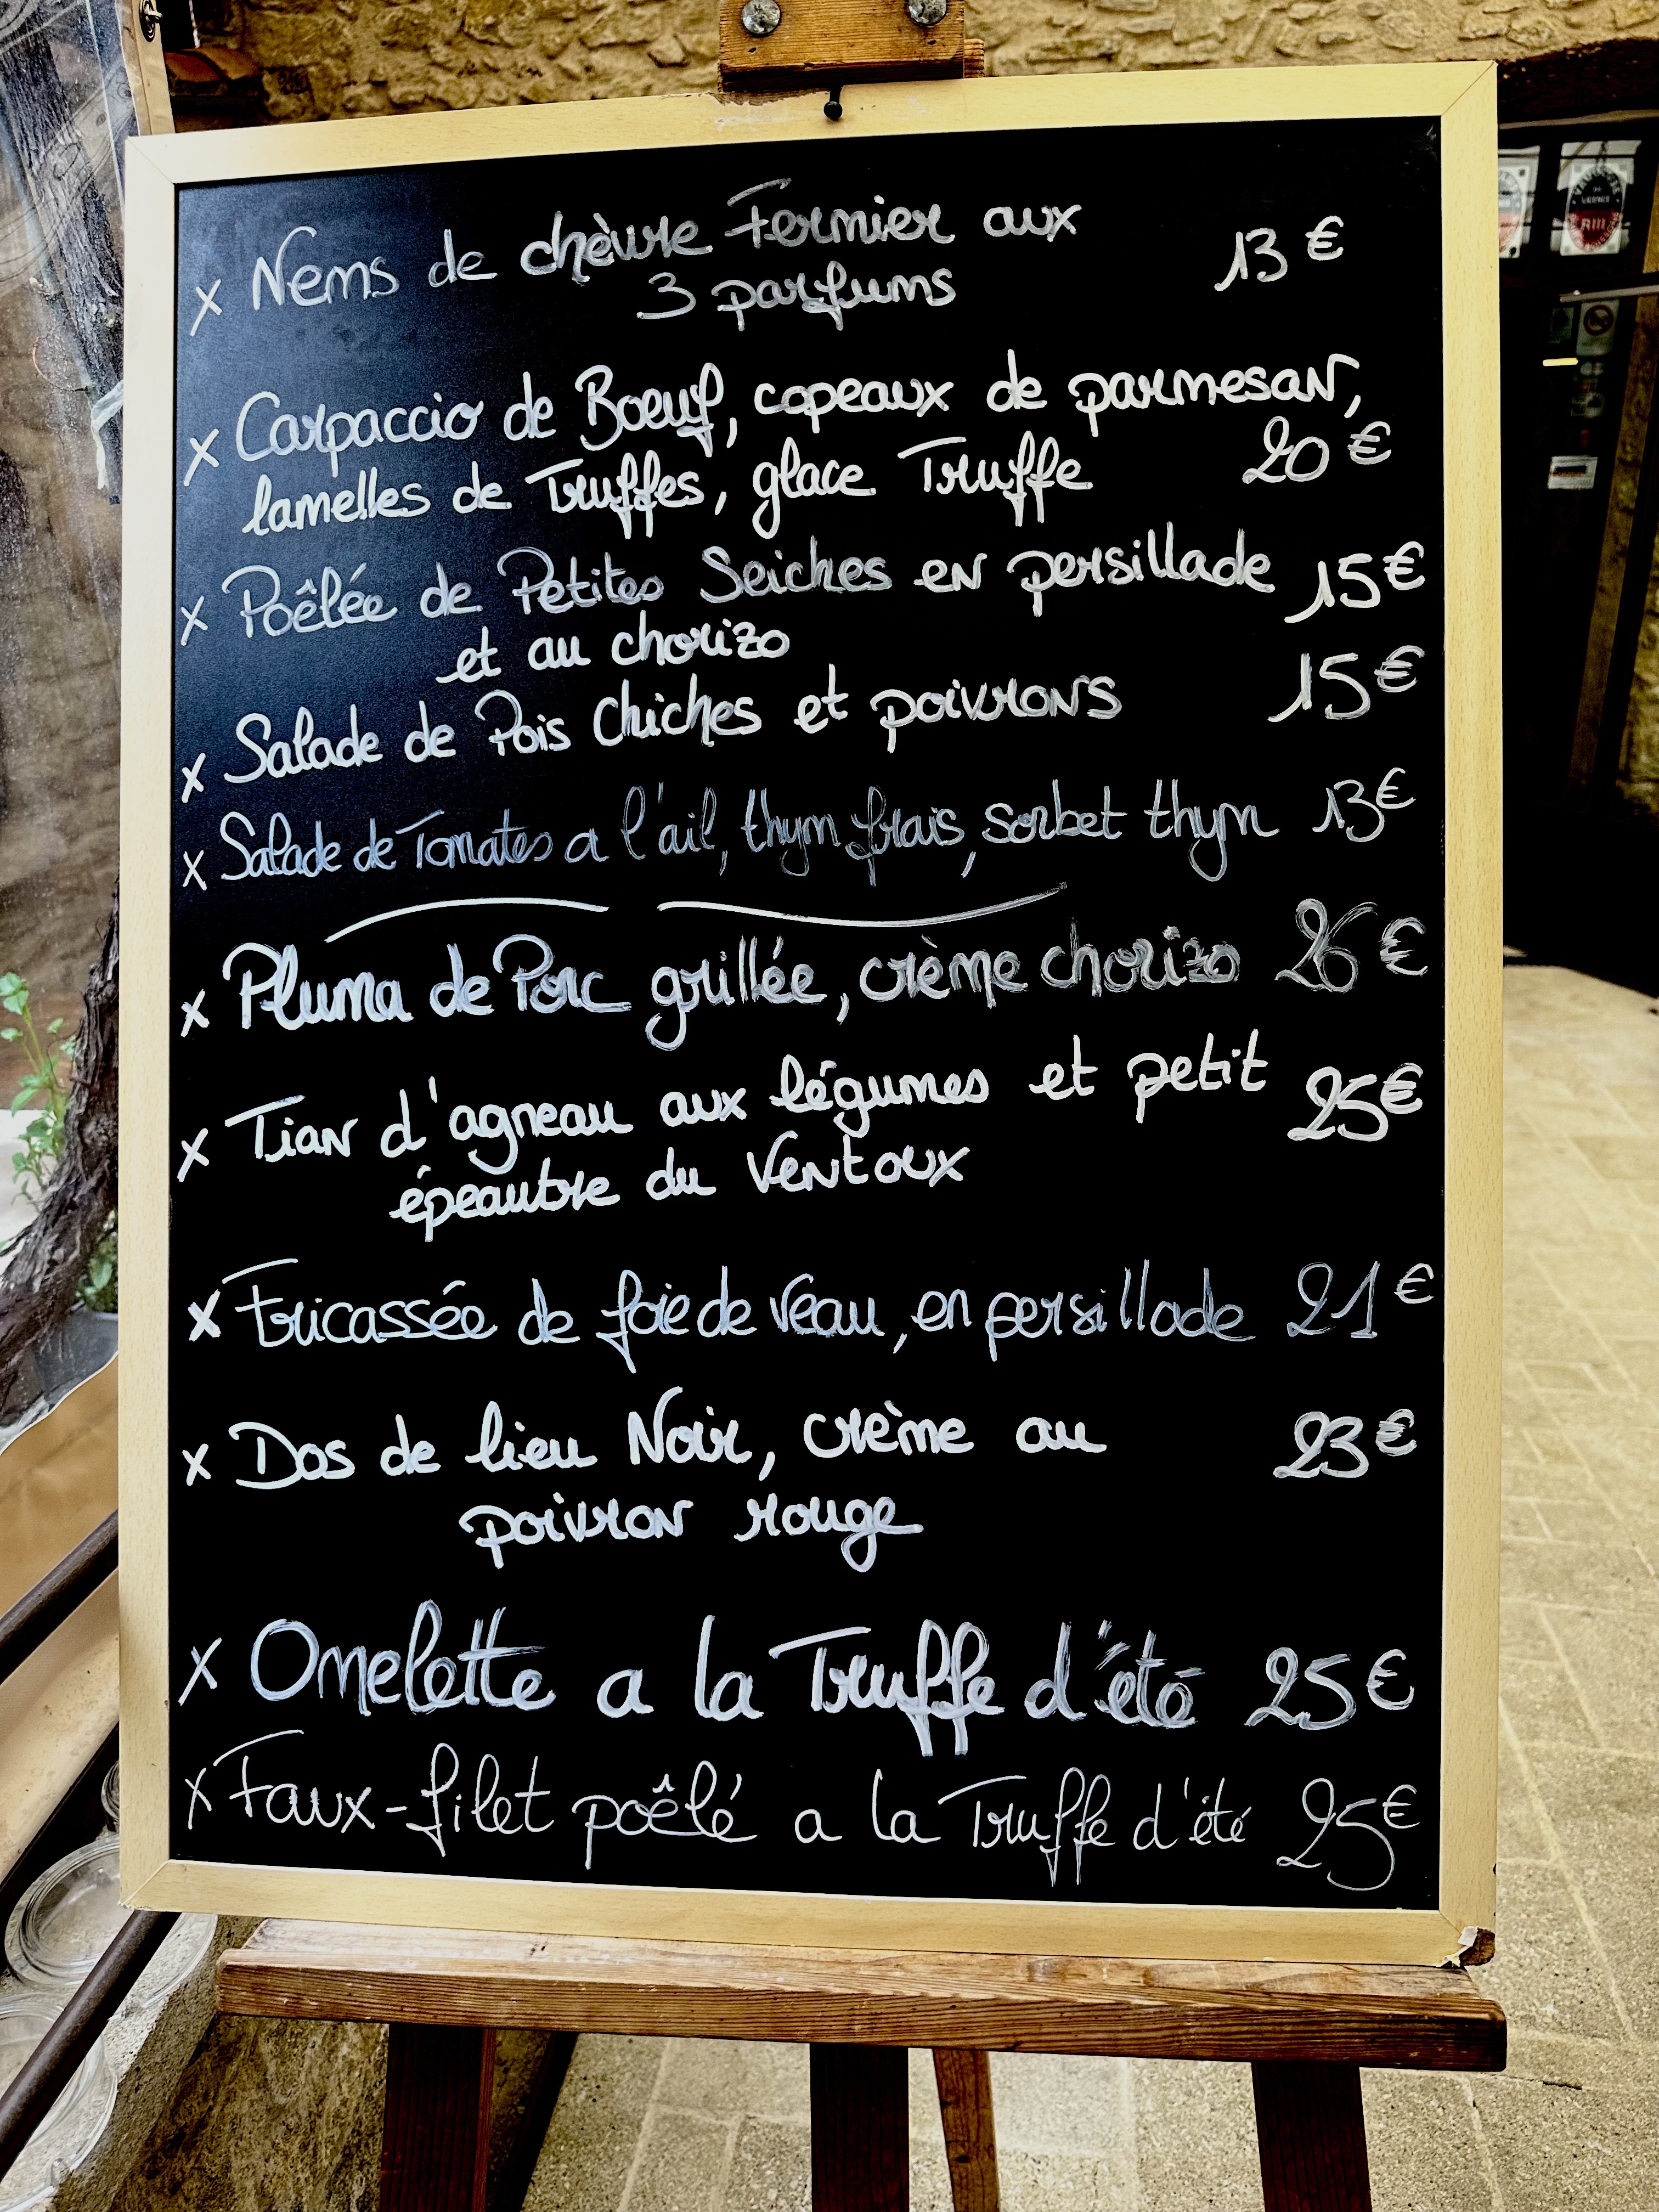 x Nems de chèvre Fermier aux 13 €
3 parfums
x Carpaccio de Boeuf, copeaux de parmesan,
lamelles de Truffes, glace Truffe 20 €
x Poêlée de Petites Seiches en persillade 15 €
et au chorizo
x Salade de Pois Chiches et poivrons 15 €
x Salade de Tomates a l'ail, thym frais, sorbet thym 13 €
x Pluma de Porc grillée, crème chorizo 26 €
x Tian d'agneau aux légumes et petit 25 €
épeautre du Ventoux
x Fricassée de foie de veau, en persillade 21 €
x Dos de lieu Noir, crème au 23 €
poivron rouge
x Omelette a la Truffe d'été 25 €
x Faux-filet poêlé a la Truffe d'été 25 €